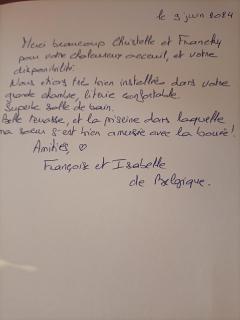 le 3 juin 2024
Merci beaucoup Christelle et Francky
pour votre chaleureux acceuil, et votre
disponibilité.
Nous étions très bien installées dans votre
grande chambre, literie confortable.
Superbe salle de bain.
Belle terrasse, et la piscine dans laquelle
ma soeur s'est bien amusée avec la bouée!
Amitiés, ♡
Françoise et Isabelle
de Belgique.